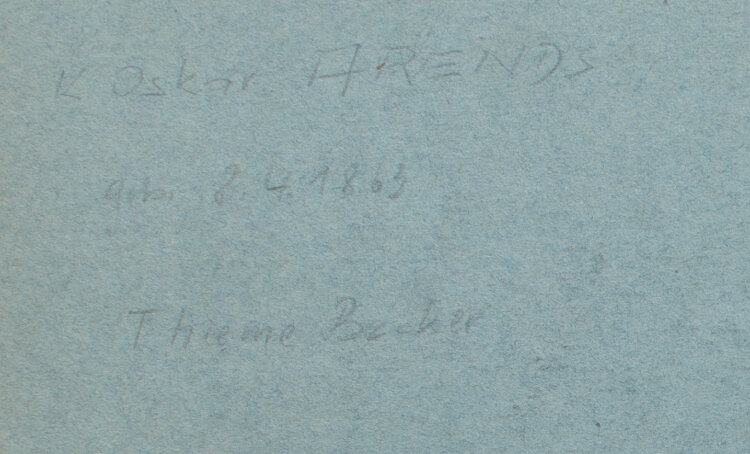 K Oskar ARENDS
geb. 8.4.1863
Thieme Becker